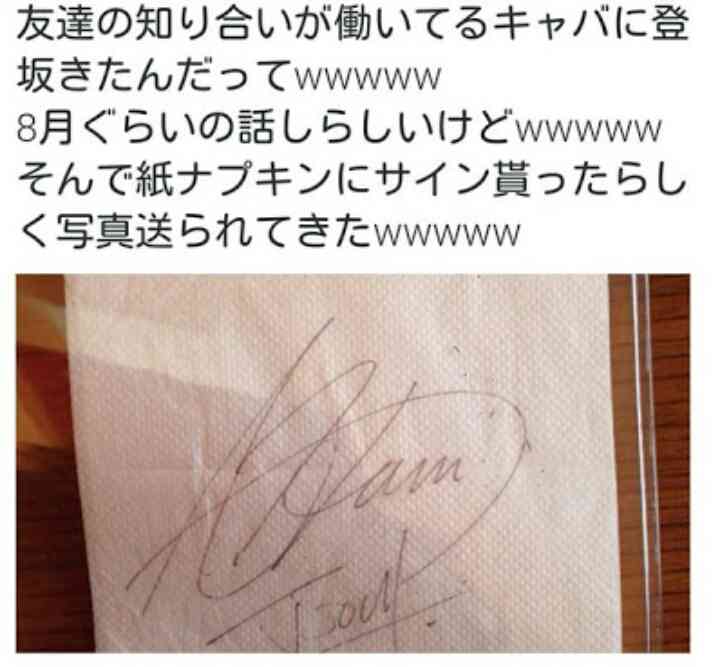 友達の知り合いが働いてるキャバに登
坂きたんだってwwwww
8月ぐらいの話しらしいけどwwwww
そんで紙ナプキンにサイン貰ったらし
く写真送られてきたwwwww